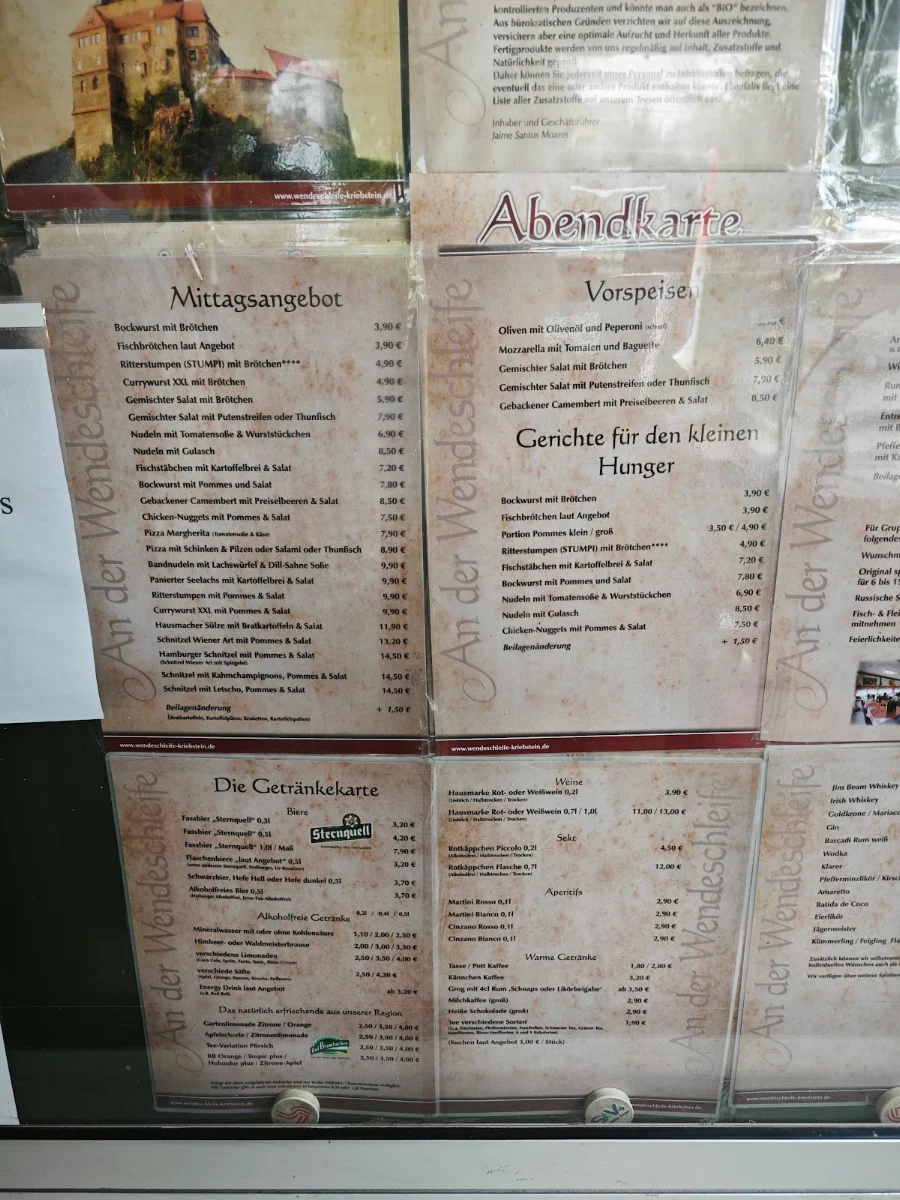 www.wendeschleife-kriebstein.de
An
kontrollierten Produzenten und könnte man auch als "BIO" bezeichnen.
Aus bürokratischen Gründen verzichten wir auf diese Auszeichnung,
versichern aber eine optimale Aufzucht und Herkunft aller Produkte.
Fertigprodukte werden von uns regelmäßig auf Inhalt, Zusatzstoffe und
Natürlichkeit geprüft.
Daher können Sie jederzeit unser Personal zu Inhaltsstoffen befragen, die
eventuell das eine oder andere Produkt enthalten könnte. Ebenfalls liegt eine
Liste aller Zusatzstoffe auf unserem Tresen öffentlich aus.
Inhaber und Geschäftsführer
Jaime Santos Moares
S
An der Wendeschleife
Mittagsangebot
Bockwurst mit Brötchen 3,90 €
Fischbrötchen laut Angebot 3,90 €
Ritterstumpen (STUMPI) mit Brötchen**** 4,90 €
Currywurst XXL mit Brötchen 4,90 €
Gemischter Salat mit Brötchen 5,90 €
Gemischter Salat mit Putenstreifen oder Thunfisch 7,90 €
Nudeln mit Tomatensoße & Wurststückchen 6,90 €
Nudeln mit Gulasch 8,50 €
Fischstäbchen mit Kartoffelbrei & Salat 7,20 €
Bockwurst mit Pommes und Salat 7,80 €
Gebackener Camembert mit Preiselbeeren & Salat 8,50 €
Chicken-Nuggets mit Pommes & Salat 7,50 €
Pizza Margherita (Tomatensoße & Käse) 7,90 €
Pizza mit Schinken & Pilzen oder Salami oder Thunfisch 8,90 €
Bandnudeln mit Lachswürfel & Dill-Sahne Soße 9,90 €
Panierter Seelachs mit Kartoffelbrei & Salat 9,90 €
Ritterstumpen mit Pommes & Salat 9,90 €
Currywurst XXL mit Pommes & Salat 9,90 €
Hausmacher Sülze mit Bratkartoffeln & Salat 11,90 €
Schnitzel Wiener Art mit Pommes & Salat 13,20 €
Hamburger Schnitzel mit Pommes & Salat 14,50 €
(Schnitzel Wiener Art mit Spiegelei)
Schnitzel mit Rahmchampignons, Pommes & Salat 14,50 €
Schnitzel mit Letscho, Pommes & Salat 14,50 €
Beilagenänderung + 1,50 €
(Bratkartoffeln, Kartoffelpüree, Kroketten, Kartoffelspalten)
www.wendeschleife-kriebstein.de
Abendkarte
An der Wendeschleife
Vorspeisen
Oliven mit Olivenöl und Peperoni (scharf)
Mozzarella mit Tomaten und Baguette 6,40 €
Gemischter Salat mit Brötchen 5,90 €
Gemischter Salat mit Putenstreifen oder Thunfisch 7,90 €
Gebackener Camembert mit Preiselbeeren & Salat 8,50 €
Gerichte für den kleinen
Hunger
Bockwurst mit Brötchen 3,90 €
Fischbrötchen laut Angebot 3,90 €
Portion Pommes klein / groß 3,50 € / 4,90 €
Ritterstumpen (STUMPI) mit Brötchen**** 4,90 €
Fischstäbchen mit Kartoffelbrei & Salat 7,20 €
Bockwurst mit Pommes und Salat 7,80 €
Nudeln mit Tomatensoße & Wurststückchen 6,90 €
Nudeln mit Gulasch 8,50 €
Chicken-Nuggets mit Pommes & Salat 7,50 €
Beilagenänderung + 1,50 €
www.wendeschleife-kriebstein.de
An der Wendeschleife
Für Grup
folgendes
Wunschm
Original sp
für 6 bis 15
Russische S
Fisch- & Flei
mitnehmen
Feierlichkeite
An der Wendeschleife
Die Getränkekarte
Biere
Sternquell
Fassbier „Sternquell" 0,3l 3,20 €
Fassbier „Sternquell" 0,5l 4,20 €
Fassbier „Sternquell" 1,0l / Maß 7,90 €
Flaschenbiere „laut Angebot" 0,5l 3,20 €
Schwarzbier, Hefe Hell oder Hefe dunkel 0,5l 3,70 €
Alkoholfreies Bier 0,5l 3,70 €
Alkoholfreie Getränke 0,2l / 0,4l / 0,5l
Mineralwasser mit oder ohne Kohlensäure 1,10 / 2,00 / 2,50 €
Himbeer- oder Waldmeisterbrause 2,00 / 3,00 / 3,50 €
verschiedene Limonaden 2,50 / 3,50 / 4,00 €
verschiede Säfte 2,50 / 4,20 €
Energy Drink laut Angebot ab 3,20 €
(z.B. Red Bull)
Das natürlich erfrischende aus unserer Region
Gartenlimonade Zitrone / Orange 2,50 / 3,50 / 4,00 €
Apfelschorle / Zitronenlimonade 2,50 / 3,50 / 4,00 €
Tee-Variation Pfirsich 2,50 / 3,50 / 4,00 €
BB Orange / Tropic plus / 2,50 / 3,50 / 4,00 €
Holunder plus / Zitrone-Apfel
Bad Brambacher
An der Wendeschleife
Weine
Hausmarke Rot- oder Weißwein 0,2l 3,90 €
(Lieblich / Halbtrocken / Trocken)
Hausmarke Rot- oder Weißwein 0,7l / 1,0l 11,00 / 13,00 €
(Lieblich / Halbtrocken / Trocken)
Sekt
Rotkäppchen Piccolo 0,2l 4,50 €
(Alkoholfrei / Halbtrocken / Trocken)
Rotkäppchen Flasche 0,7l 12,00 €
(Alkoholfrei / Halbtrocken / Trocken)
Aperitifs
Martini Rosso 0,1l 2,90 €
Martini Bianco 0,1l 2,90 €
Cinzano Rosso 0,1l 2,90 €
Cinzano Bianco 0,1l 2,90 €
Warme Getränke
Tasse / Pott Kaffee 1,80 / 2,80 €
Kännchen Kaffee 3,20 €
Grog mit 4cl Rum „Schnaps oder Likörbeigabe" ab 3,50 €
Milchkaffee (groß) 2,90 €
Heiße Schokolade (groß) 2,90 €
Tee verschiedene Sorten 1,90 €
(Kuchen laut Angebot 3,00 € / Stück)
An der Wendeschleife
Jim Beam Whiskey
Irish Whiskey
Goldkrone / Mariac
Gin
Barcadi Rum weiß
Wodka
Klarer
Pfefferminzlikör / Kirsc
Amaretto
Batida de Coco
Eierlikör
Jägermeister
Kümmerling / Feigling Fla
Zusätzlich können wir selbstverst
individuellen Wünschen auch als
Wir verfügen über weitere Spirituo